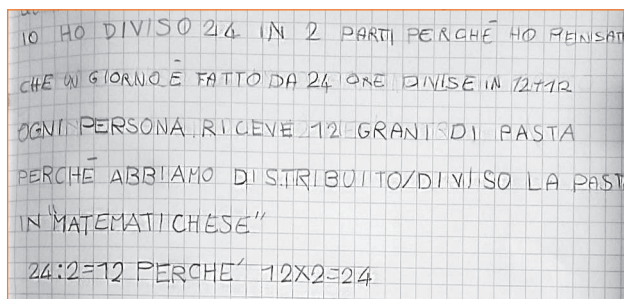 IO HO DIVISO 24 IN 2 PARTI PERCHÉ HO PENSAT
CHE UN GIORNO È FATTO DA 24 ORE DIVISE IN 12+12
OGNI PERSONA RICEVE 12 GRANI DI PASTA
PERCHÉ ABBIAMO DISTRIBUITO/DIVISO LA PAST
IN "MATEMATICHESE"
24:2=12 PERCHE' 12X2=24